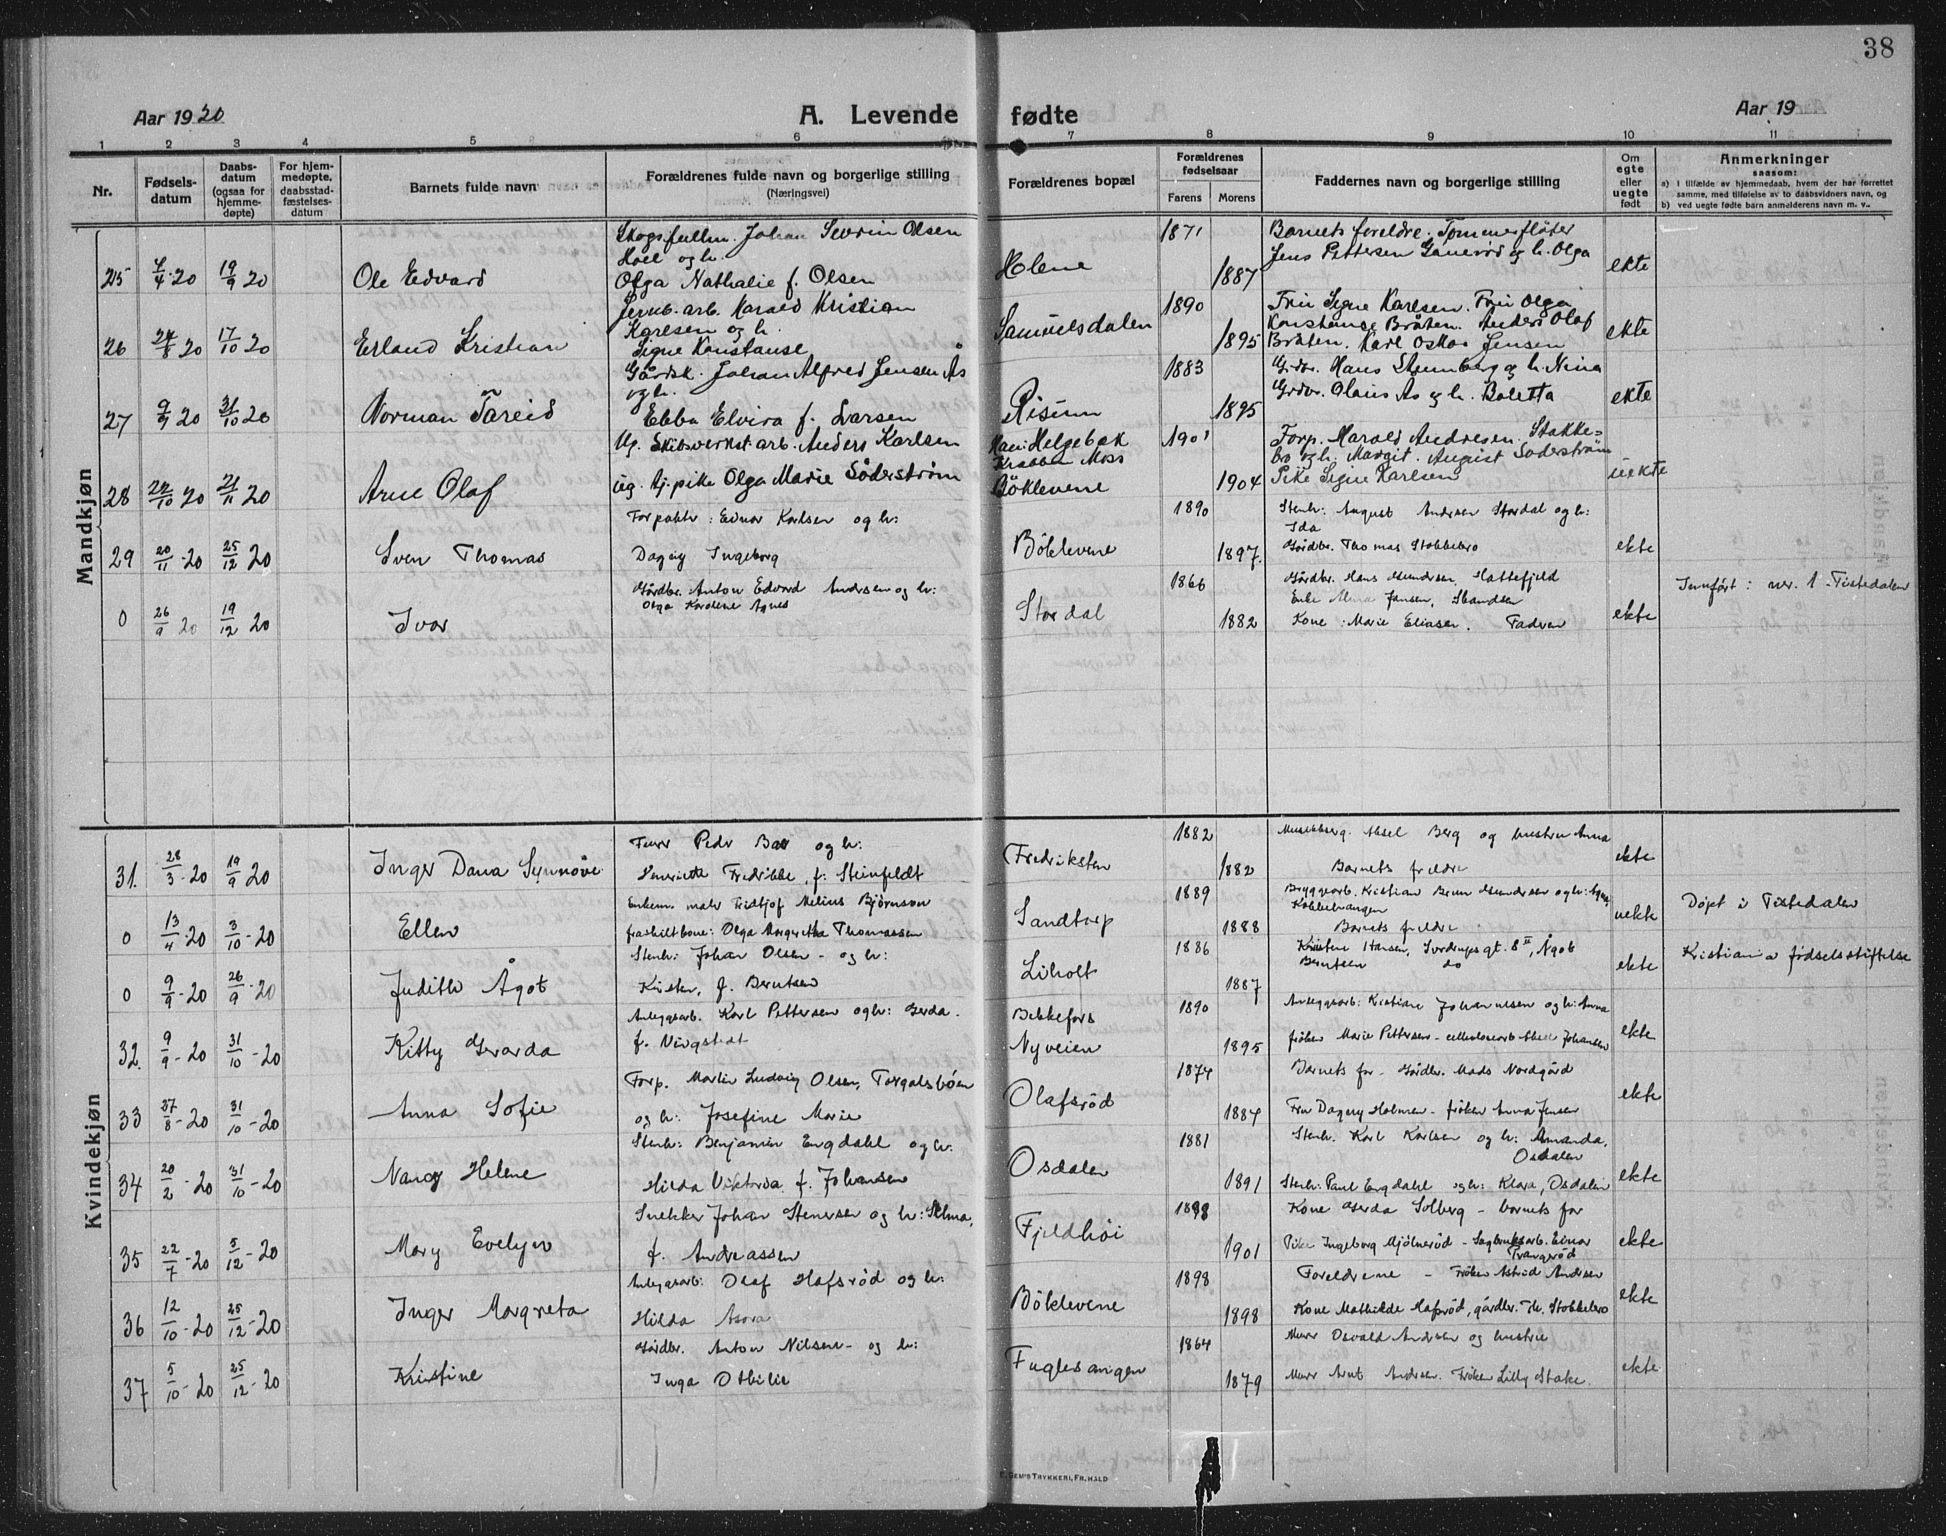 38
Aar 1920
A. Levende fødte
Aar 19
1 2 3 4 5 6 7 8 9 10 11
Nr.
Fødsels-
datum
Daabs-
datum
(ogsaa for
hjemme-
døpte)
For hjem-
medøpte,
daabsstad-
fæstelses-
datum
Barnets fulde navn
Forældrenes fulde navn og borgerlige stilling
(Næringsvei)
Forældrenes bopæl
Forældrenes
fødselsaar
Farens Morens
Faddernes navn og borgerlige stilling
Om
egte
eller
uegte
født
Anmerkninger
saasom:
a) i tilfælde av hjemmedaab, hvem der har forrettet
samme, med tilføielse av to daabsvidners navn, og
b) ved uegte fødte barn anmelderens navn m. v..
Mandkjøn
Skogsfullm. Johan Severin Olsen 1871 Barnets foreldre. Tømmerfløter
Hoel og h. Jens Pettersen Ganerød og h. Olga
25 4/4 20 19/9 20 Ole Edvard Olga Nathalie f. Olsen Holene 1887 ekte
Jernb. arb. Harald Kristian 1890 Fru Signe Karlsen. Fru Olga
Karlsen og h. Konstanse Bråten. Anders Olaf
26 24/8 20 17/10 20 Erland Kristian Signe Konstanse Samuelsdalen 1895 Bråten. Karl Oskar Jensen ekte
Gårdsk. Johan Alfred Jensen Ås 1883 Grdbr. Hans Strømberg og h. Nina
og h. Grdbr. Olaus Ås og h. Boletta
27 9/9 20 31/10 20 Norman Tareid Ebba Elvira f. Larsen Risum 1895 ekte
Ug. Skibsverkst arb. Anders Karlsen Han: Helgebok 1901 Forp. Harald Andresen Stokke-
Krabben Moss bo og h. Margit. August Söderström
28 22/10 20 21/11 20 Arne Olaf ug. Tj. pike Olga Marie Söderström Böklevene 1904 Pike Signe Karlsen uekte
Forpakter: Einar Karlsen og h: 1890 Stenh: August Andersen Stordal og h:
Ida
29 20/11-20 25/12 20 Sven Thomas Dagny Ingeborg Böklevene 1897. Gårdbr. Thomas Stokkebro ekte
Gårdbr. Anton Edvard Andersen og h: 1866 Gårdbr. Hans Gundersen, Hattefjeld Innført: nr. 1 - Tistedalen
Olga Karoline Agnes Enke Mina Jensen,
0 26/9 20 19/12 20 Ivar Stordal 1882 Kone: Marie Eliasen. Faderen ekte
Kvindekjøn
Peder Baer og h: 1882 Aksel Berg og hustru Anna
31. 28/3-20 19/9 20 Inger Dana Synnöve Henriette Fredrikke, f. Steinfeldt Fredriksten 1882 Barnets foreldre ekte
Enkem. maler Fridtjof Melius Björnson 1889 Bryggearb. Kristian Brun Gundersen og h: Agnes,
Kobbelhaugen Døpt i Tistedalen
0 13/4-20 3/10-20 Ellen fraskilt kone: Olga Margretha Thomassen Sandtorp 1888 Barnets foreldre uekte
Stenh: Johan Olsen - og h: 1886 Kristine Hansen, Sverdrupsgt. 8 II, Ågot
Berntsen do Kristiania fødselsstiftelse
0 9/9-20 26/9-20 Judith Ågot Kristen, f. Berntsen Liholt 1887 ekte
Anleggsarb. Karl Pettersen og h: Gerda. Bekkefors 1890 Anleggsarb: Kristian Johannesen og h: Anna
32. 9/9-20 31/10-20 Kitty Gerarda f. Vingstedt Nyveien 1895 frøken Marie Pettersen - cellulosearb. Aksel Johansen ekte
Forp. Martin Ludvig Olsen, Torgalsbøen 1874 Barnets far - Gårdbr. Mads Nordgård
33 27/8-20 31/10-20 Anna Sofie og h: Josefine Marie Olafsrød 1884 Fru Dagny Holmen - frøken Anna Jensen ekte
Stenh: Benjamin Engdahl og h: 1881 Stenh. Karl Karlsen og h: Amanda,
Osdalen
34 20/2-20 31/10-20 Nancy Helene Hilda Viktoria f. Johansen Osdalen 1891 Stenh: Paul Engdahl og h: Klara, Osdalen ekte
Snekker Johan Stenersen og h: Selma, 1898 Kone Gerda Solberg - barnets far
35 22/7-20 5/12-20 Mary Evelyn f. Andreassen Fjeldhöi 1901 Pike Ingeborg Mjölneröd - Sagbruksarb. Einar
Prangeröd ekte
Anleggsarb: Olaf Hafsröd og h: 1898 Foreldrene - Frøken Astrid Andersen
36 12/10-20 25/12-20 Inger Margreta Hilda Asora Böklevene 1898 Kone Mathilde Hafsröd, gårdbr. Th. Stokkebro ekte
Gårdbr. Anton Nilsen - og h: 1864 Murer Osvald Andersen og hustru
37 5/10-20 25/12-20 Kristine Inga Othilie Fuglesangen 1879 Murer Arnt Andersen. Frøken Lilly Stake. ekte
E. SEM'S TRYKKERI, FR.HALD